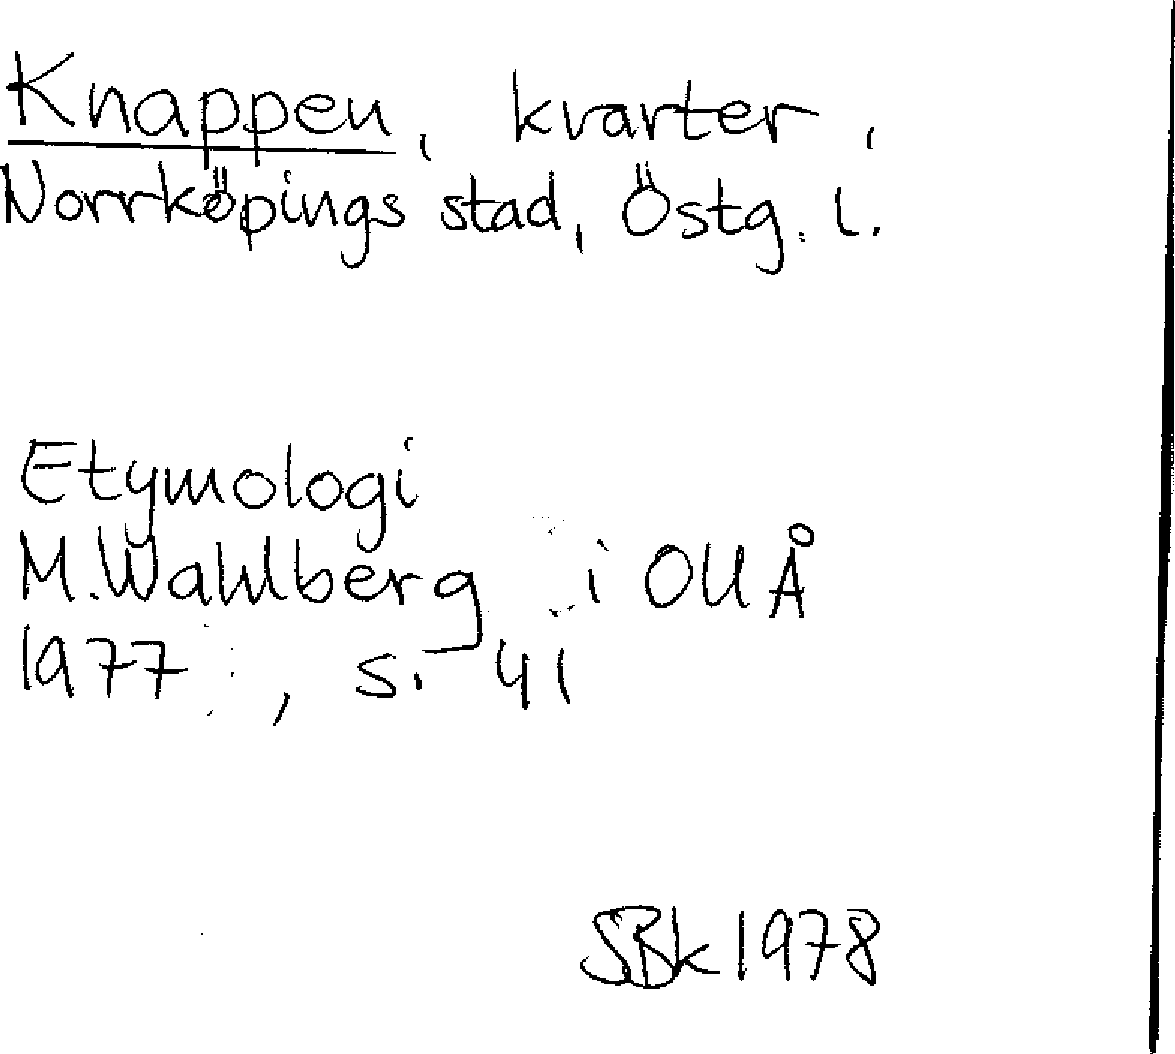 Knappen, kvarter,
Norrköpings stad, Östg. l.
Etymologi
M. Wahlberg i OUÅ
1977, s. 41
SBk 1978